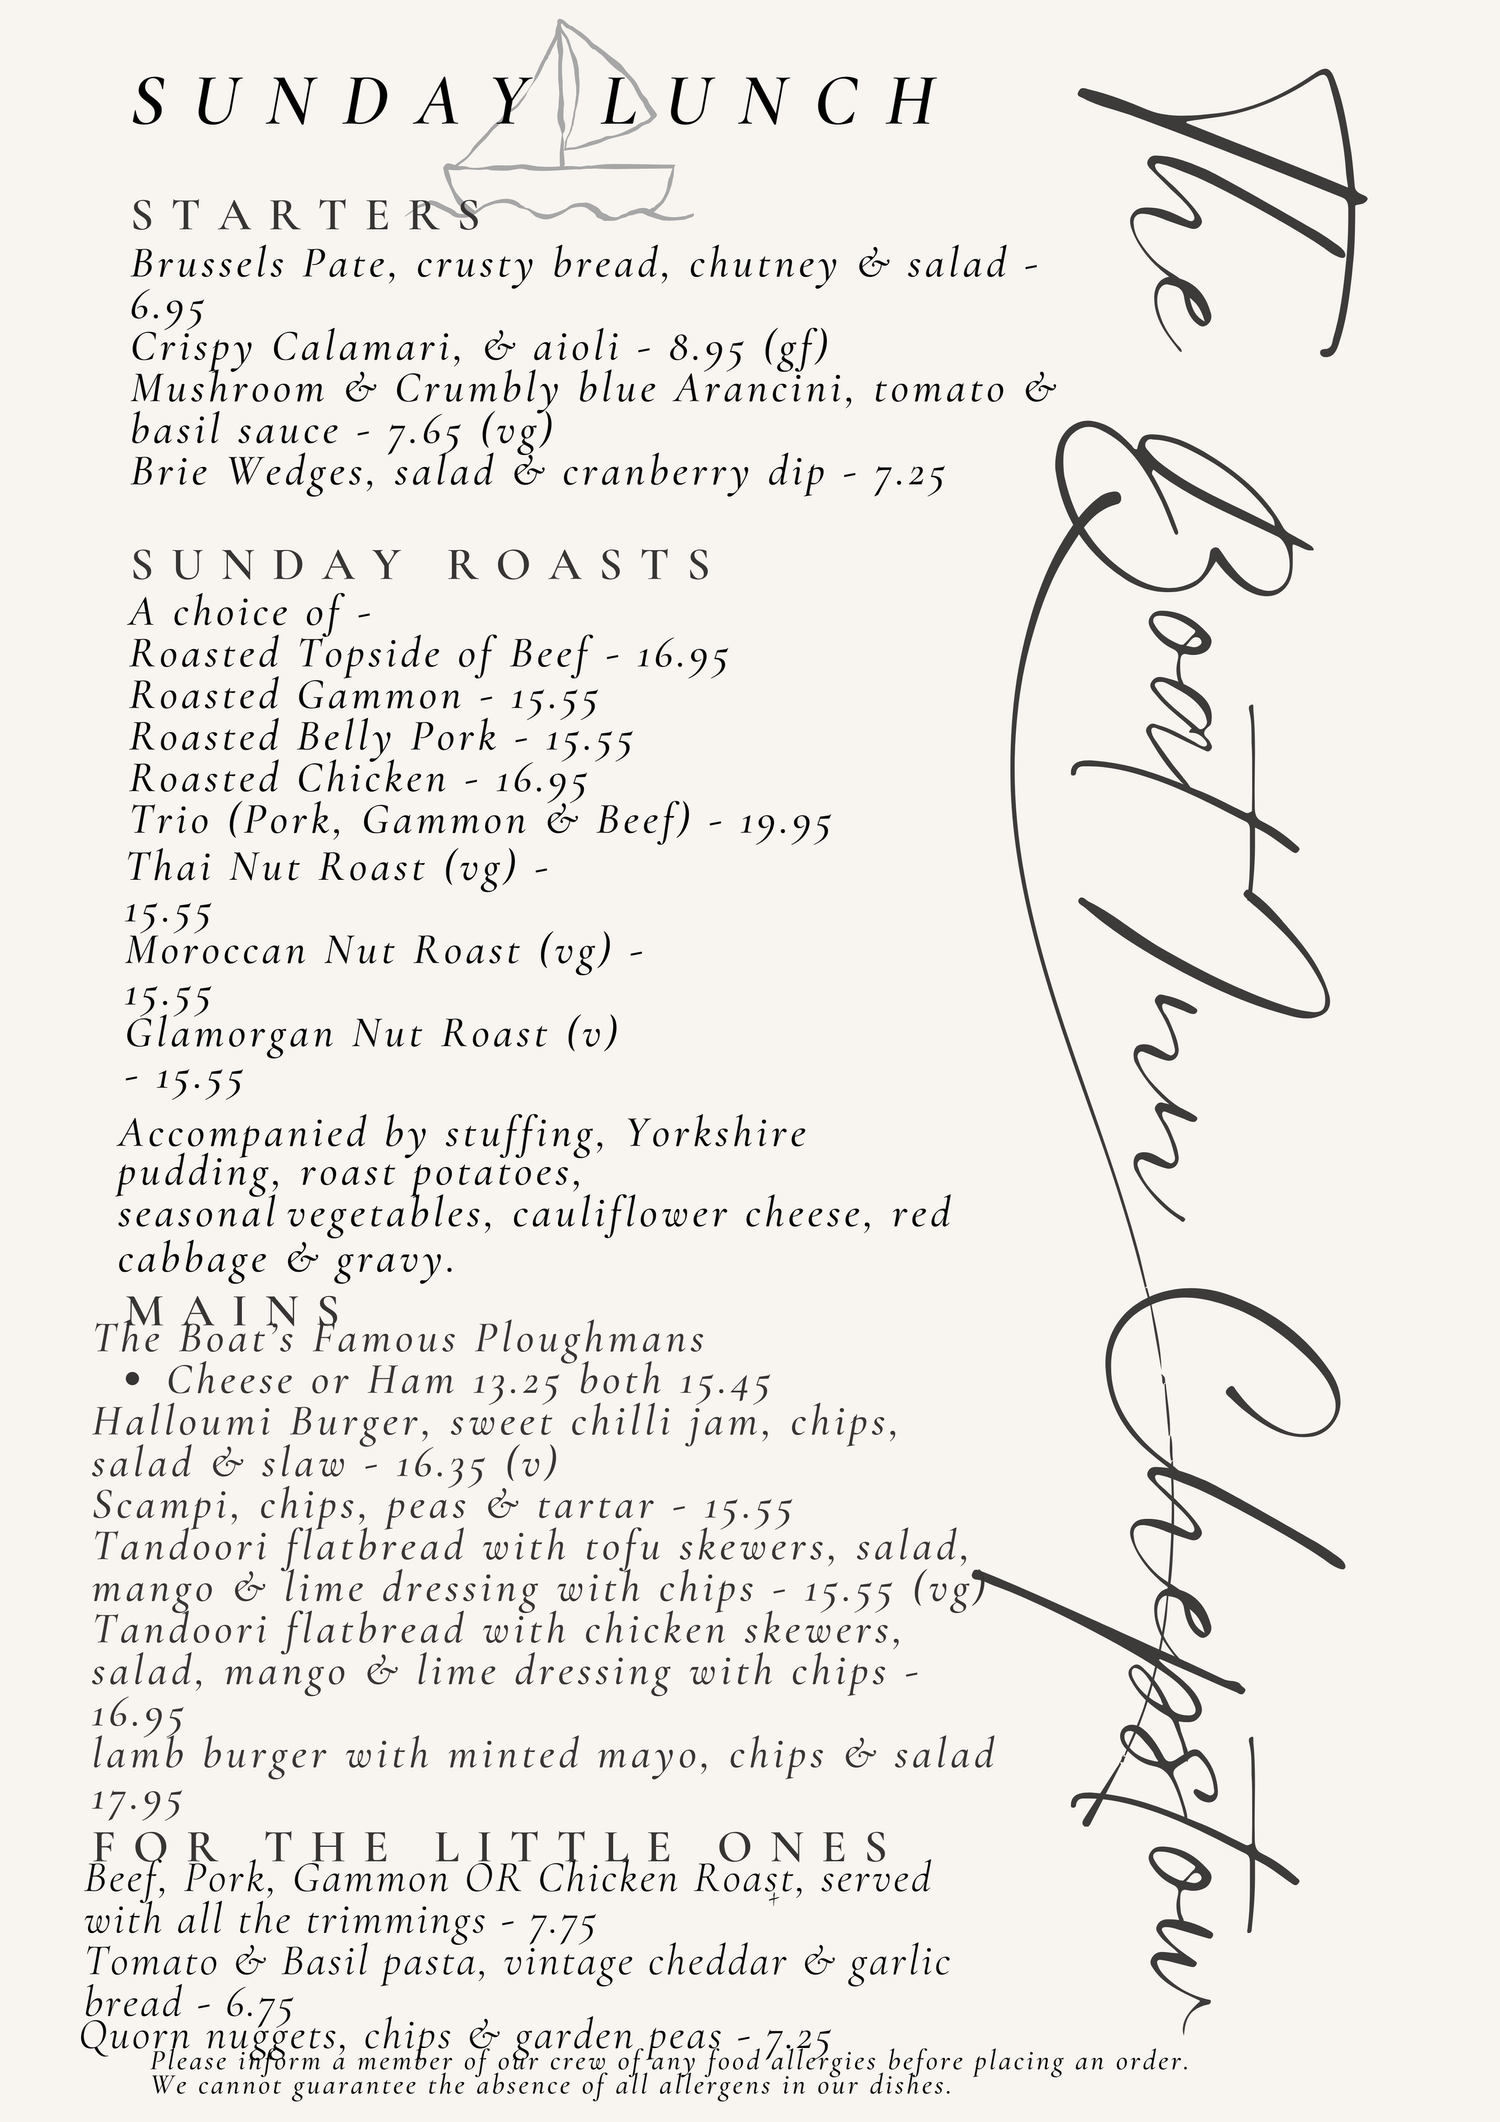 SUNDAY LUNCH
STARTERS
Brussels Pate, crusty bread, chutney & salad -
6.95
Crispy Calamari, & aioli - 8.95 (gf)
Mushroom & Crumbly blue Arancini, tomato &
basil sauce - 7.65 (vg)
Brie Wedges, salad & cranberry dip - 7.25
SUNDAY ROASTS
A choice of -
Roasted Topside of Beef - 16.95
Roasted Gammon - 15.55
Roasted Belly Pork - 15.55
Roasted Chicken - 16.95
Trio (Pork, Gammon & Beef) - 19.95
Thai Nut Roast (vg) -
15.55
Moroccan Nut Roast (vg) -
15.55
Glamorgan Nut Roast (v)
- 15.55
Accompanied by stuffing, Yorkshire
pudding, roast potatoes,
seasonal vegetables, cauliflower cheese, red
cabbage & gravy.
MAINS
The Boat's Famous Ploughmans
• Cheese or Ham 13.25 both 15.45
Halloumi Burger, sweet chilli jam, chips,
salad & slaw - 16.35 (v)
Scampi, chips, peas & tartar - 15.55
Tandoori flatbread with tofu skewers, salad,
mango & lime dressing with chips - 15.55 (vg)
Tandoori flatbread with chicken skewers,
salad, mango & lime dressing with chips -
16.95
lamb burger with minted mayo, chips & salad
17.95
FOR THE LITTLE ONES
Beef, Pork, Gammon OR Chicken Roast, served
with all the trimmings - 7.75
Tomato & Basil pasta, vintage cheddar & garlic
bread - 6.75
Quorn nuggets, chips & garden peas - 7.25
Please inform a member of our crew of any food allergies before placing an order.
We cannot guarantee the absence of all allergens in our dishes.
The Boat Inn Chepstow